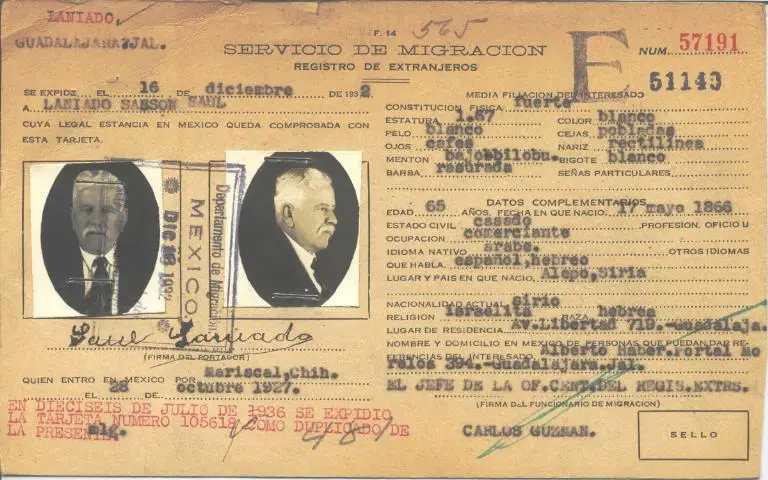 LANIADO,
GUADALAJARA, JAL.
F. 14
565
SERVICIO DE MIGRACION
REGISTRO DE EXTRANJEROS
E
NUM. 57191
51143
SE EXPIDE EL 16 DE diciembre DE 1932
A LANIADO SASSON SAUL
CUYA LEGAL ESTANCIA EN MEXICO QUEDA COMPROBADA CON
ESTA TARJETA.
Departamento de Migracion
MEXICO.
DIC 16 1932
Saul Laniado
(FIRMA DEL PORTADOR)
QUIEN ENTRO EN MEXICO POR Mariscal, Chih.
EL 28 DE octubre 1927.
EN DIECISEIS DE JULIO DE 1936 SE EXPIDIO
LA TARJETA NUMERO 105618 COMO DUPLICADO DE
LA PRESENTE
mlg.
MEDIA FILIACION DEL INTERESADO
CONSTITUCION FISICA fuerte
ESTATURA 1.67 COLOR blanco
PELO blanco CEJAS pobladas
OJOS cafes NARIZ rectilinea
MENTON bajo-bilobu. BIGOTE blanco
BARBA rasurada SEÑAS PARTICULARES
DATOS COMPLEMENTARIOS
EDAD 65 AÑOS. FECHA EN QUE NACIO. 17 mayo 1866
ESTADO CIVIL casado PROFESION, OFICIO U
OCUPACION comerciante
IDIOMA NATIVO arabe. OTROS IDIOMAS
QUE HABLA. español, hebreo
LUGAR Y PAIS EN QUE NACIO. Alepo, Siria
NACIONALIDAD ACTUAL sirio
RELIGION israelita RAZA hebrea
LUGAR DE RESIDENCIA Av. Libertad 719.-Guadalaja.
NOMBRE Y DOMICILIO EN MEXICO DE PERSONAS QUE PUEDAN DAR RE-
FERENCIAS DEL INTERESADO. Alberto Haber. Portal Mo
relos 394.-Guadalajara, Jal.
EL JEFE DE LA OF. CENT. DEL REGIS. EXTRS.
(FIRMA DEL FUNCIONARIO DE MIGRACION)
CARLOS GUZMAN.
SELLO